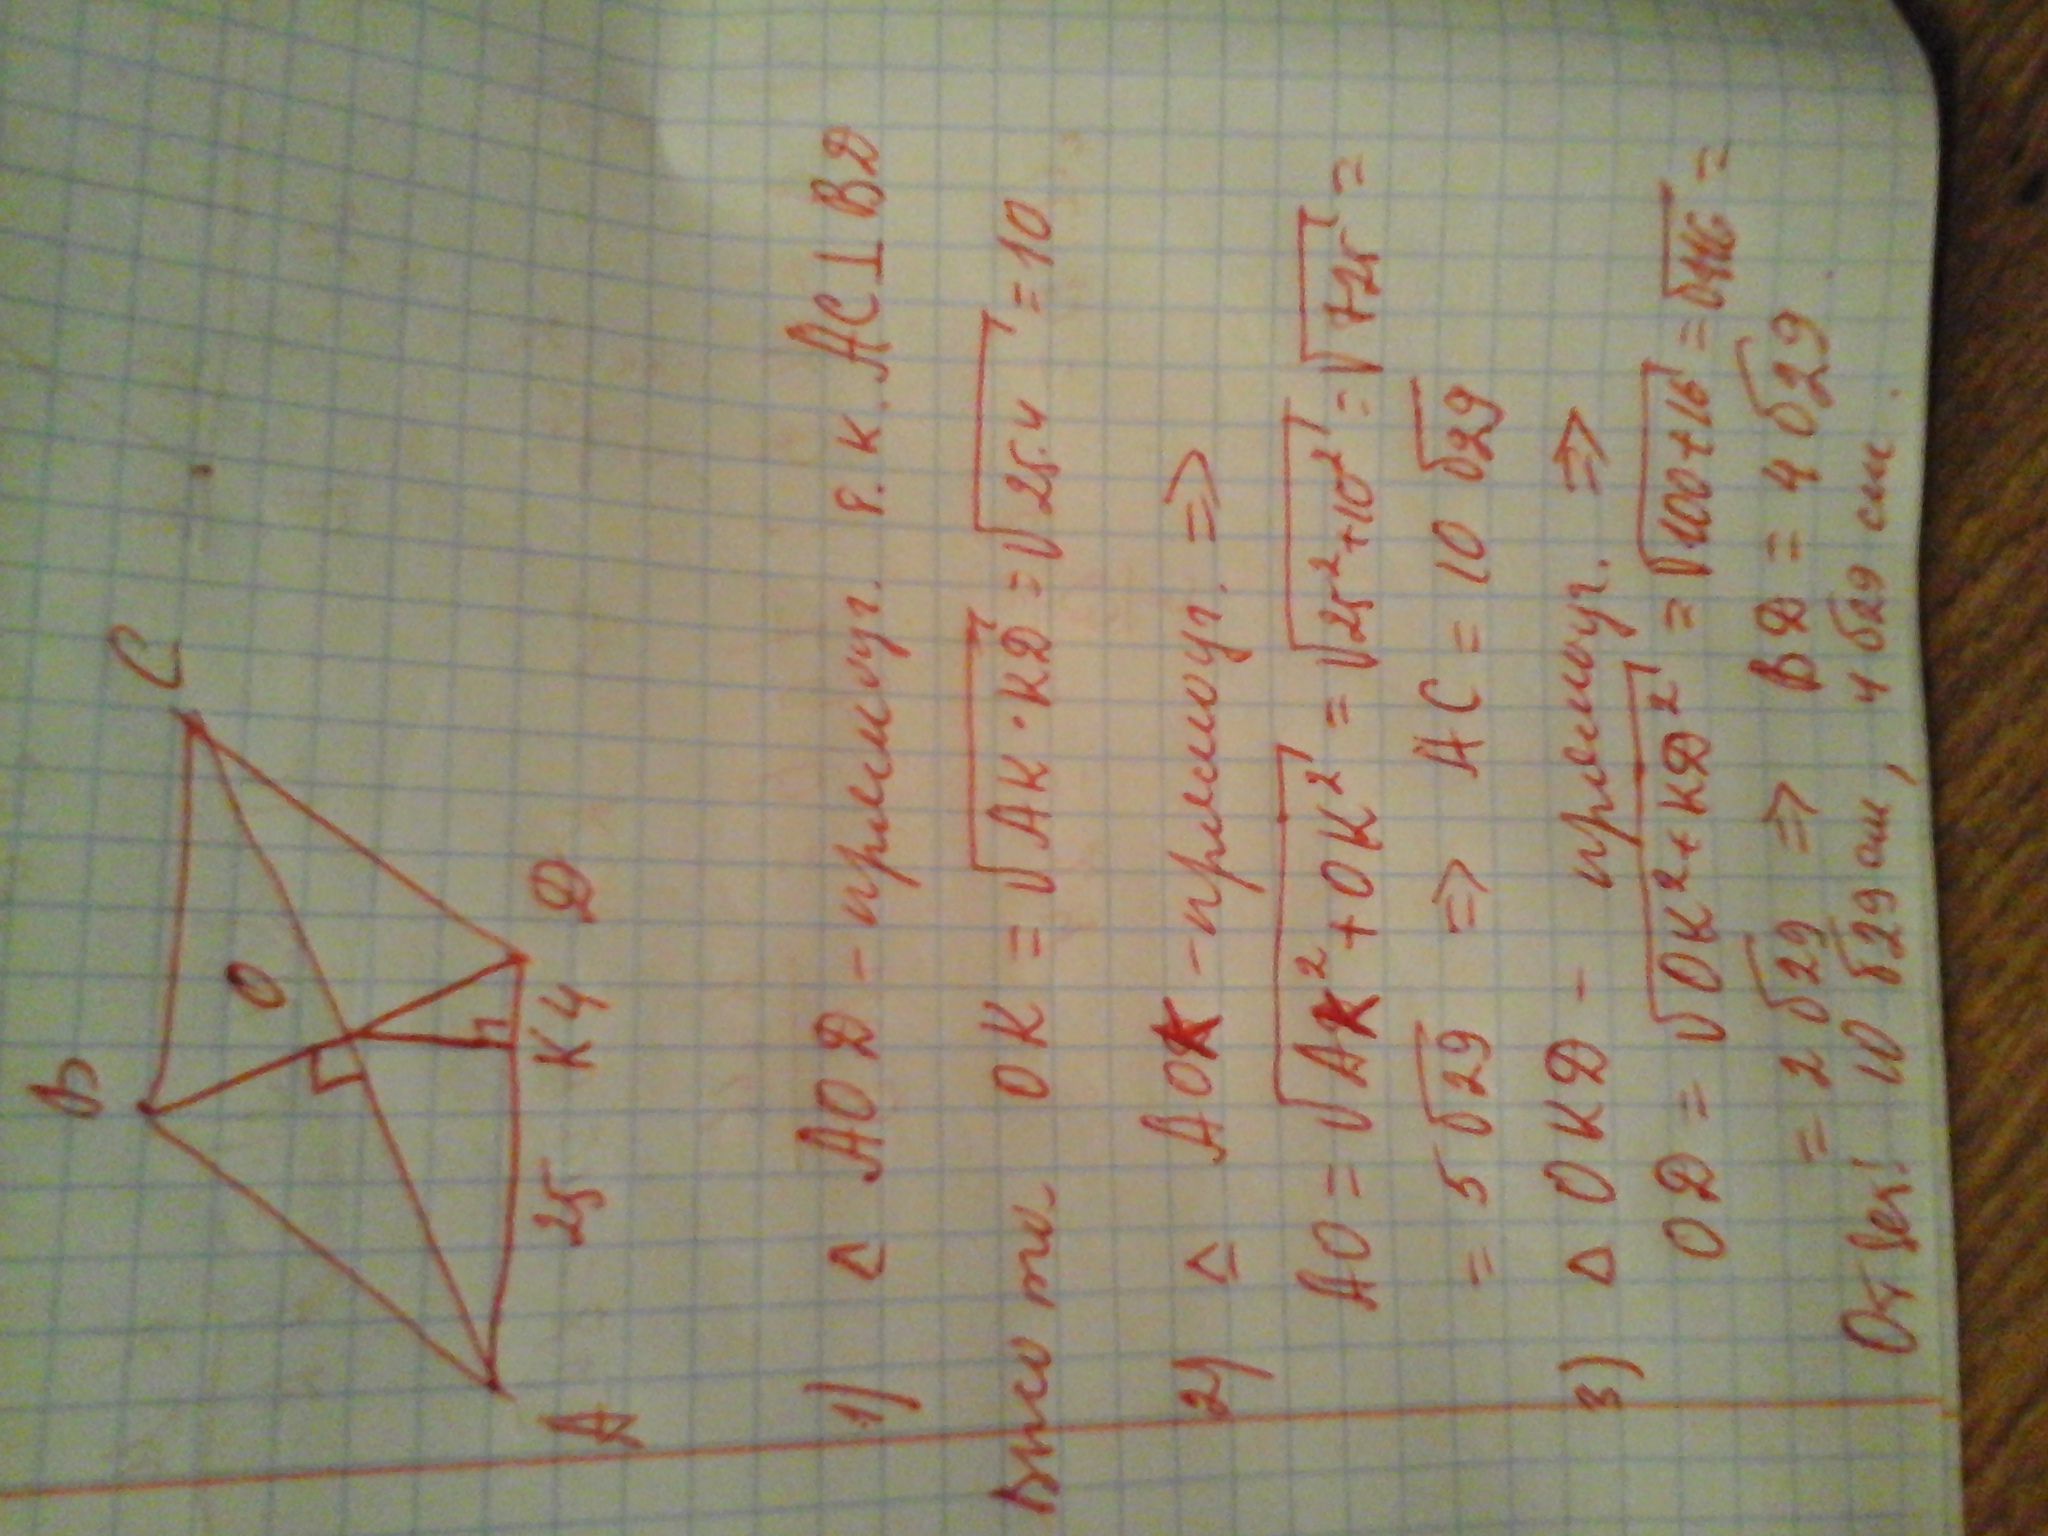 B
C
O
A
25
K
4
D
1) △ AOD - прямоуг. т.к. AC ⊥ BD
Высота OK = √AK·KD = √25·4 = 10
2) △ AOK - прямоуг. ⇒
AO = √AK²+OK² = √25²+10² = √725 =
= 5√29 ⇒ AC = 10√29
3) △ OKD - прямоуг. ⇒
OD = √OK²+KD² = √100+16 = √116 =
= 2√29 ⇒ BD = 4√29
Ответ: 10√29 см, 4√29 см.